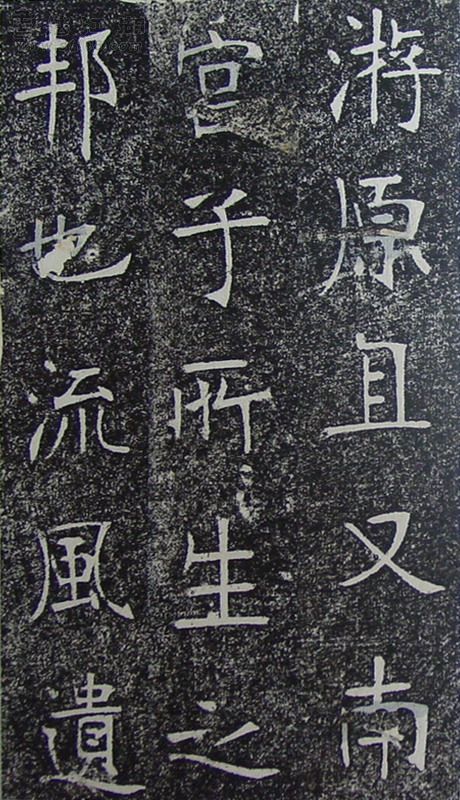 游原且又南
宫子所生之
邦也流風遺